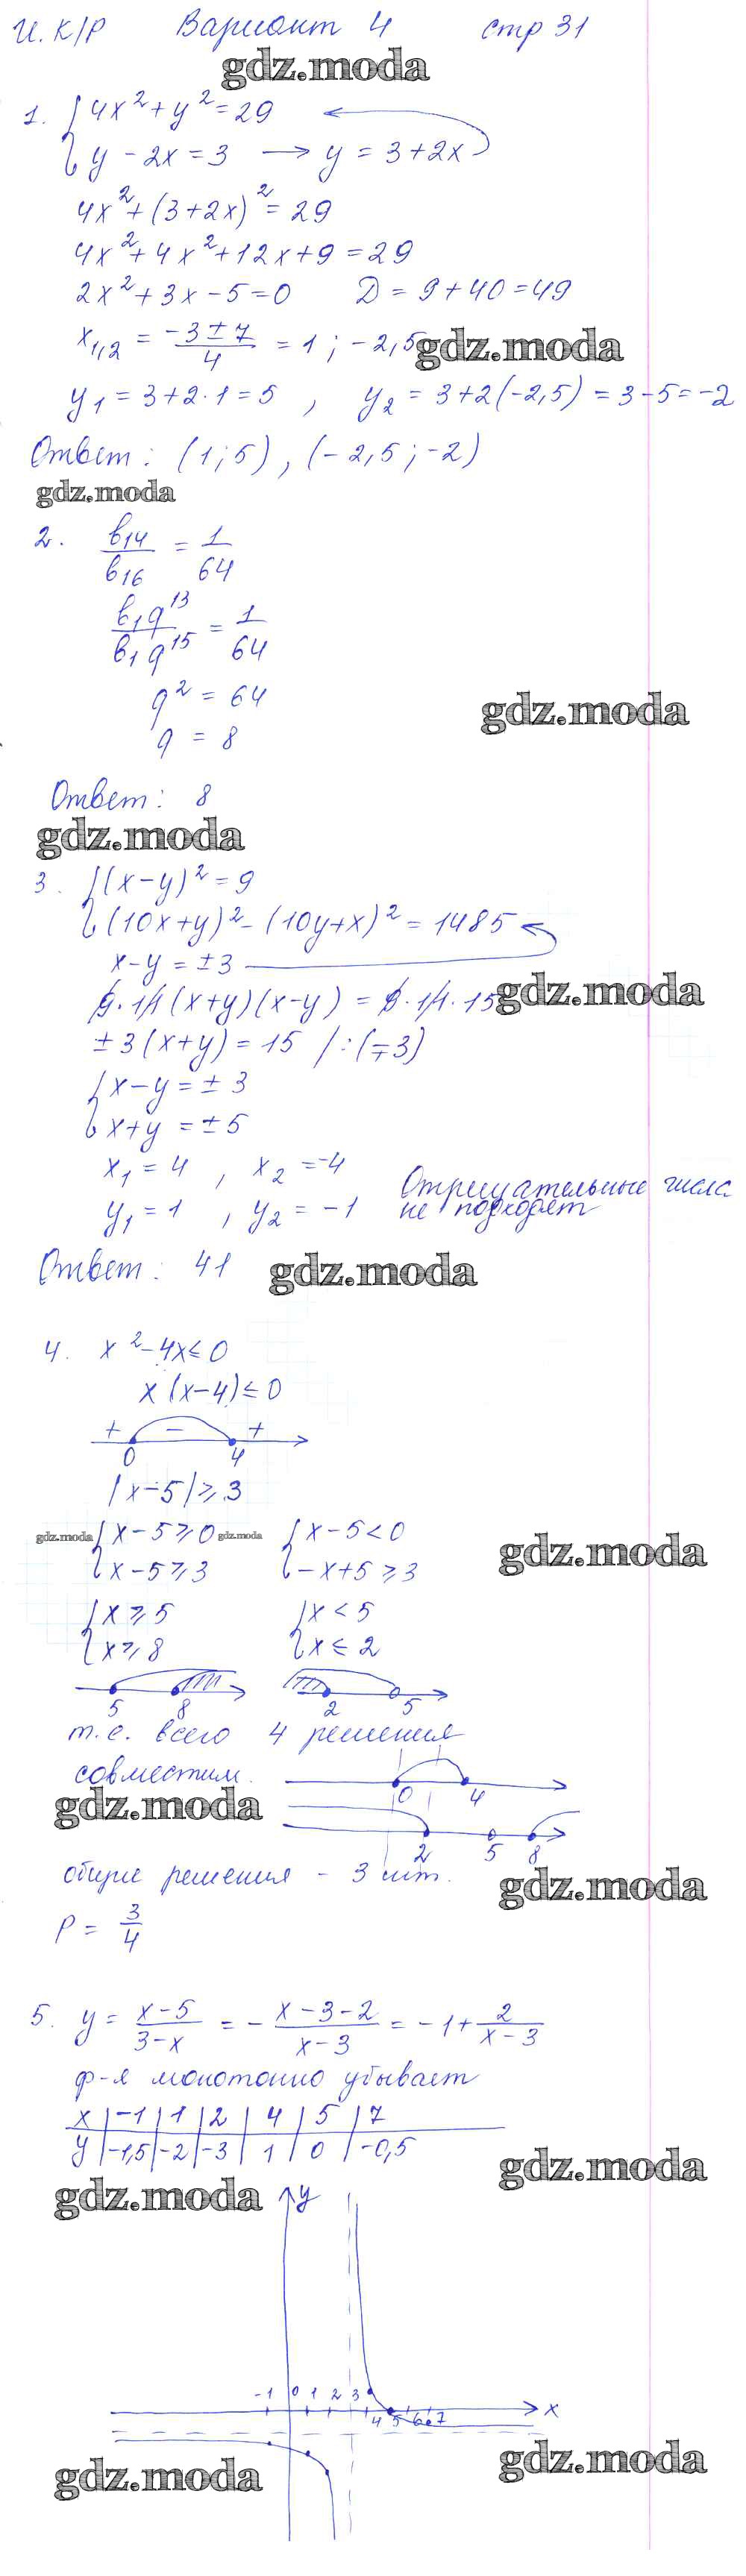 И. К/Р Вариант 4 стр 31
gdz.moda
1. { 4x² + y² = 29
y - 2x = 3 → y = 3 + 2x
4x² + (3 + 2x)² = 29
4x² + 4x² + 12x + 9 = 29
2x² + 3x - 5 = 0 D = 9 + 40 = 49
x₁,₂ = (-3 ± 7)/4 = 1 ; -2,5
gdz.moda
y₁ = 3 + 2·1 = 5 , y₂ = 3 + 2(-2,5) = 3 - 5 = -2
Ответ: (1; 5), (-2,5; -2)
gdz.moda
2. b₁₄/b₁₆ = 1/64
b₁q¹³/b₁q¹⁵ = 1/64
q² = 64
gdz.moda
q = 8
Ответ: 8
gdz.moda
3. { (x-y)² = 9
(10x+y)² - (10y+x)² = 1485
x - y = ±3
9·11(x+y)(x-y) = 9·11·15
gdz.moda
±3(x+y) = 15 /:(∓3)
{ x - y = ±3
x + y = ±5
x₁ = 4 , x₂ = -4 Отрицательные числа
y₁ = 1 , y₂ = -1 не подходят
Ответ: 41
gdz.moda
4. x² - 4x ≤ 0
x(x-4) ≤ 0
+ - +
0 4
|x-5| ≥ 3
gdz.moda { x - 5 ≥ 0 gdz.moda { x - 5 < 0
x - 5 ≥ 3 -x + 5 ≥ 3
gdz.moda
{ x ≥ 5 { x < 5
x ≥ 8 x ≤ 2
5 8 2 5
т.е. всего 4 решения
совместим.
0 4
gdz.moda
2 5 8
общие решения - 3 шт.
gdz.moda
P = 3/4
5. y = (x-5)/(3-x) = -(x-3-2)/(x-3) = -1 + 2/(x-3)
ф-я монотонно убывает
x | -1 | 1 | 2 | 4 | 5 | 7
y | -1,5 | -2 | -3 | 1 | 0 | -0,5
gdz.moda
gdz.moda
y
-1 0 1 2 3
x
4 5 6 7
gdz.moda
gdz.moda